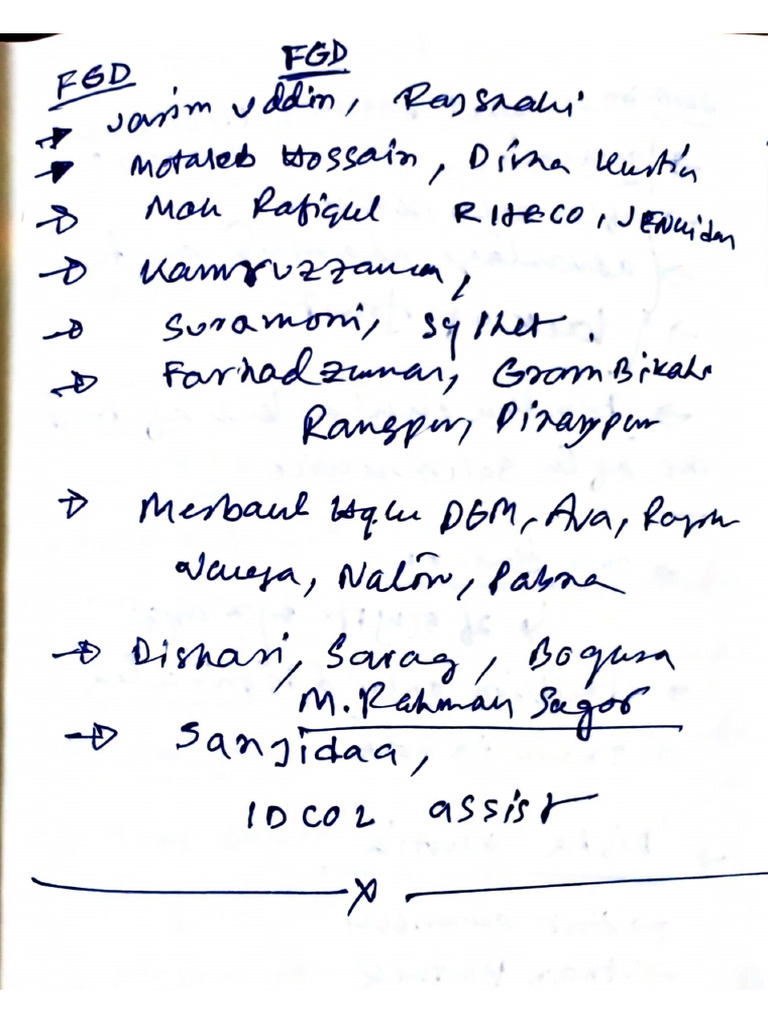 FGD FGD
Jasim Uddin, Rajshahi
Motaleb Hossain, Disha Kustia
Moh Rafiqul RIHECO, JENaidah
Kamruzzaman,
Suramoni, Sylhet.
Farhad Zuman, Gram Bikash
Rangpur, Dinajpur
Mesbaul Haque DGM, Ava, Rajsh
Naoga, Nator, Pabna
Dishari, Sarag, Bogura
M. Rahman Sagor
Sanjidaa,
IDCOL assist